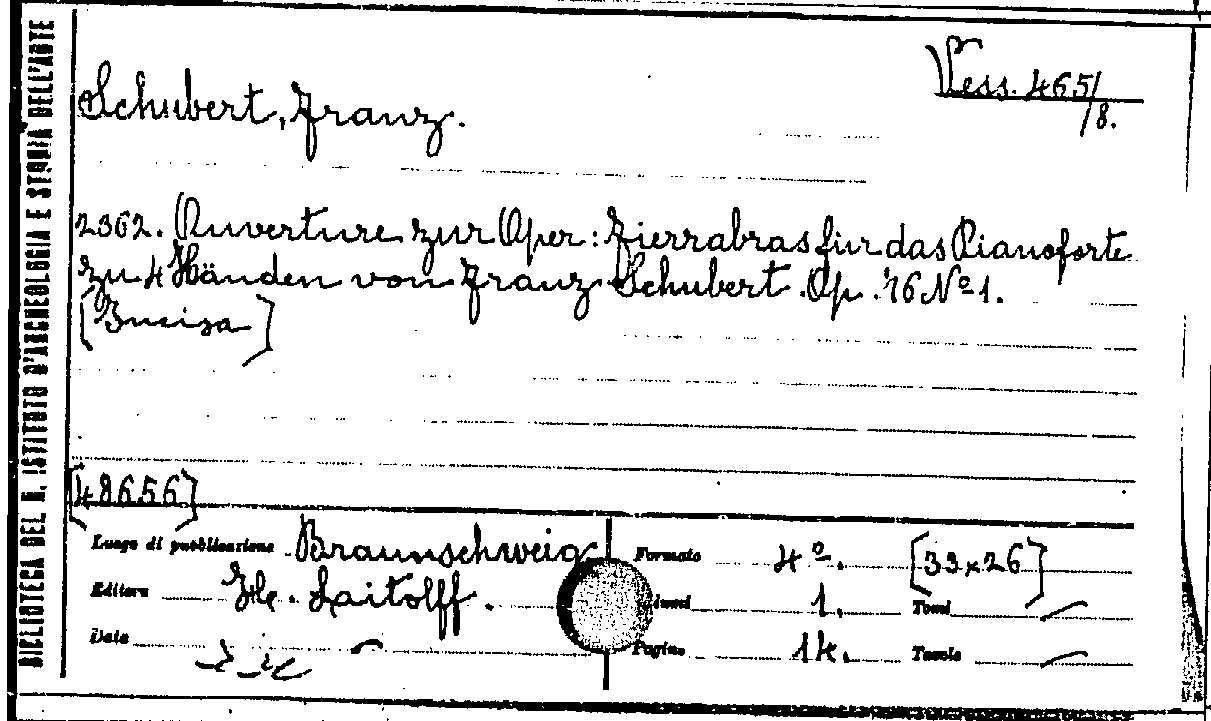 BIBLIOTECA DEL R. ISTITUTO D'ARCHEOLOGIA E STORIA DELL'ARTE
Vess. 465/
/8.
Schubert, Franz.
2362. Ouverture zur Oper: Fierrabras für das Pianoforte
zu 4 Händen von Franz Schubert. Op. 76 Nº 1.
[Incisa]
[48656]
Luogo di pubblicazione Braunschweig Formato 4º. [33x26]
Editore Laitolff. 1. Tomi
Data Pagine 14. Tavole